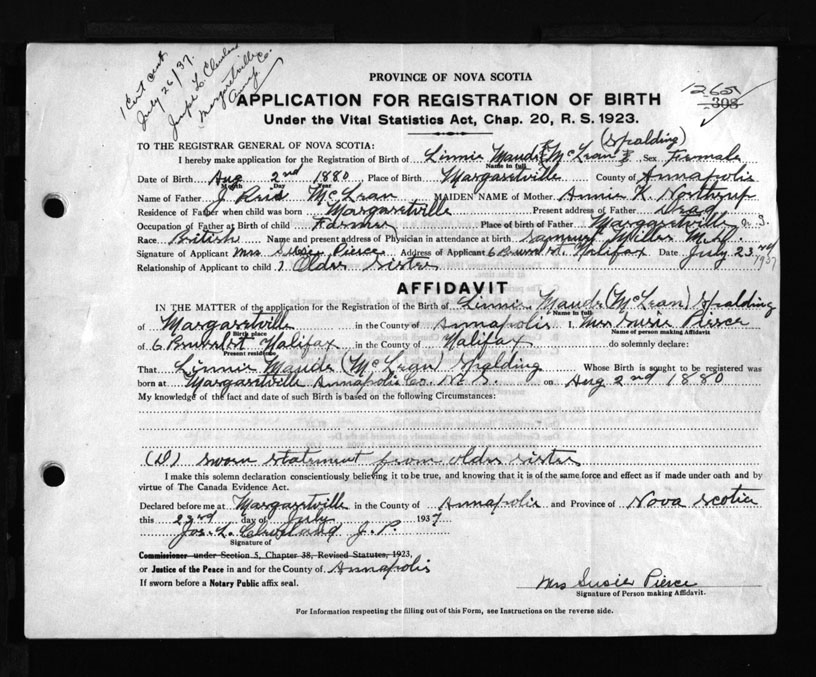 1 Cert sent
July 26/37.
Joseph L. Cleveland
Margaretville
Anna. Co.
PROVINCE OF NOVA SCOTIA
1265
308
APPLICATION FOR REGISTRATION OF BIRTH
Under the Vital Statistics Act, Chap. 20, R. S. 1923.
TO THE REGISTRAR GENERAL OF NOVA SCOTIA:
(Spalding)
I hereby make application for the Registration of Birth of Linnie Maude McLean Sex Female
Name in full
Date of Birth Aug 2nd 1880 Place of Birth Margaretville County of Annapolis
Month Day Year
Name of Father J Reid McLean MAIDEN NAME of Mother Annie K. Northrup
Residence of Father when child was born Margaretville Present address of Father Dead
Occupation of Father at Birth of child Farmer Place of birth of Father Margaretville N. S.
Race British Name and present address of Physician in attendance at birth Samuel Miller M.D.
Signature of Applicant Mrs Susie Pierce Address of Applicant 6 St. Halifax Date July 23rd
1937
Relationship of Applicant to child } Older Sister
AFFIDAVIT
IN THE MATTER of the application for the Registration of the Birth of Linnie Maude (McLean) Spalding
Name in full
of Margaretville in the County of Annapolis I, Mrs Susie Pierce
Birth place Name of person making Affidavit
of 6 St Halifax in the County of Halifax do solemnly declare:
Present residence
That Linnie Maude (McLean) Spalding Whose Birth is sought to be registered was
born at Margaretville Annapolis Co. N. S. on Aug 2nd 1880
My knowledge of the fact and date of such Birth is based on the following Circumstances:
(D) Sworn statement from older sister
I make this solemn declaration conscientiously believing it to be true, and knowing that it is of the same force and effect as if made under oath and by
virtue of The Canada Evidence Act.
Declared before me at Margaretville in the County of Annapolis and Province of Nova Scotia
this 23rd day of July 1937
Jos. L. Cleveland J. P.
Signature of
Commissioner under Section 5, Chapter 38, Revised Statutes, 1923,
or Justice of the Peace in and for the County of Annapolis
If sworn before a Notary Public affix seal.
Mrs Susie Pierce
Signature of Person making Affidavit.
For Information respecting the filling out of this Form, see Instructions on the reverse side.